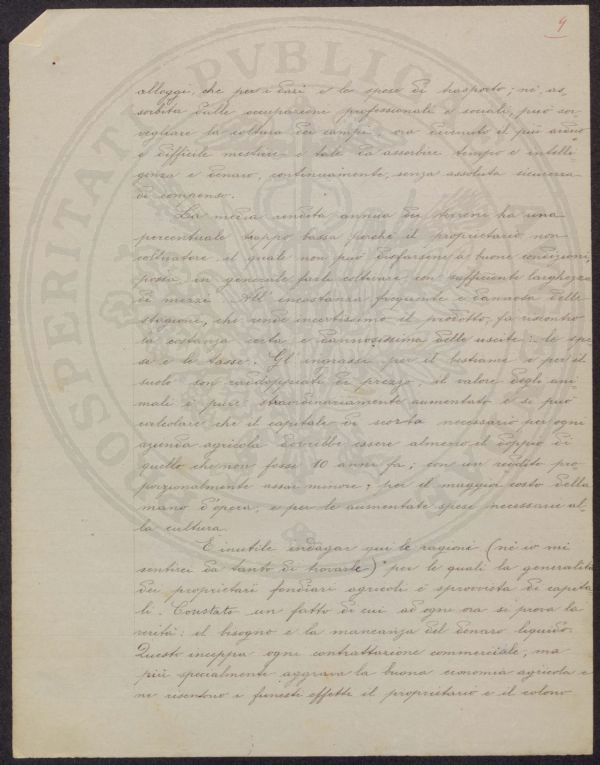 9
alloggi, che per i dazi e le spese di trasporto; nè, as-
sorbita dalle occupazioni professionali e sociali, può sor-
vegliare la coltura dei campi, ora divenuto il più arduo
e difficile mestiere e tale da assorbire tempo e intelli
genza e denaro, continuamente, senza assoluta sicurezza
di compenso.
La media rendita annua dei terreni ha una
percentuale troppo bassa perchè il proprietario non
coltivatore, il quale non può disfarsene a buone condizioni,
possa, in generale farli coltivare con sufficiente larghezza
di mezzi. All'incostanza frequente e dannosa delle
stagioni, che rende incertissimo il prodotto, fa riscontro
la costanza certa e dannosissima delle uscite: le spe
se e le tasse. Gl'ingrassi per il bestiame e per il
suolo son raddoppiati di prezzo, il valore degli ani
mali è pure straordinariamente aumentato e si può
calcolare che il capitale di scorta necessario per ogni
azienda agricola dovrebbe essere almeno il doppio di
quello che non fosse 10 anni fa; con un reddito pro
porzionalmente assai minore; per il maggior costo della
mano d'opera, e per le aumentate spese necessarie al-
la cultura.
È inutile indagar qui le ragioni (nè io mi
sentirei da tanto di trovarle) per le quali la generalità
dei proprietarî fondiari agricoli è sprovvista di capita
li. Constato un fatto di cui ad ogni ora si prova la
verità: il bisogno e la mancanza del denaro liquido.
Questo inceppa ogni contrattazione commerciale, ma
più specialmente aggrava la buona economia agricola e
ne risentono i funesti effetti il proprietario e il colono
PROSPERITATI PVBLICAE